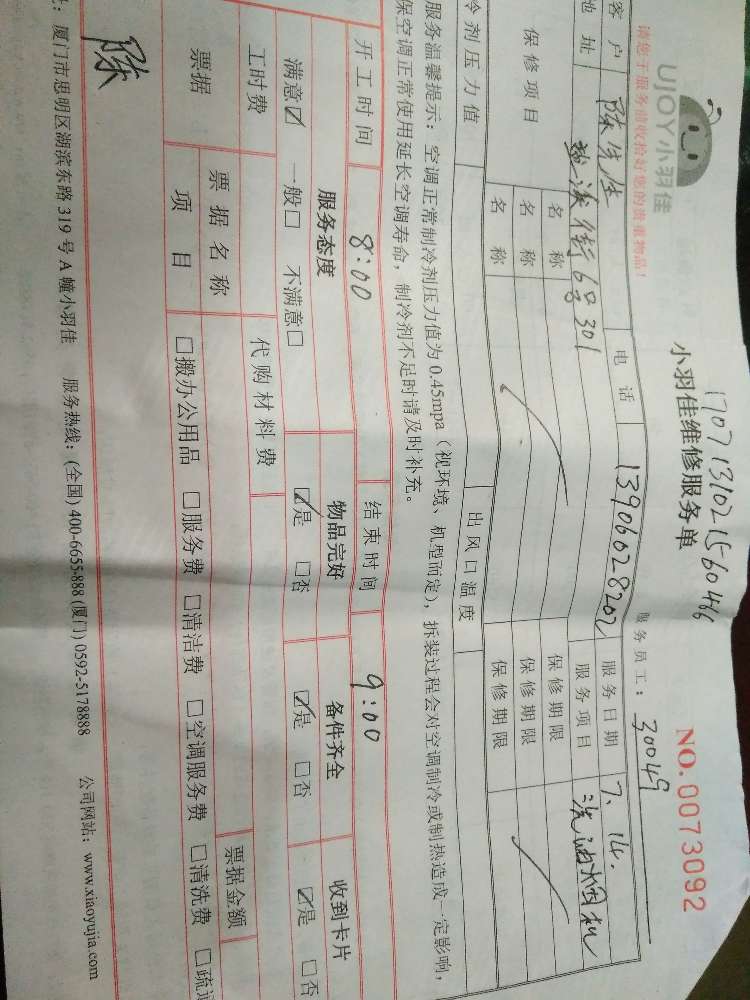 UJOY小羽佳
请您于服务前收捡好您的贵重物品！
17071310215160466
小羽佳维修服务单
NO.0073092
服务员工： 30049
客户 陈先生 电话 13906028202 服务日期 7.14.
地址 街6号301 服务项目 洗油烟机
保修项目 名称 保修期限
名称 保修期限
名称 保修期限
冷剂压力值 出风口温度
服务温馨提示：空调正常制冷剂压力值为 0.45mpa（视环境、机型而定），拆装过程会对空调制冷或制热造成一定影响，
保空调正常使用延长空调寿命，制冷剂不足时请及时补充。
开工时间 8:00 结束时间 9:00
服务态度 物品完好 备件齐全 收到卡片
满意☑ 一般□ 不满意□ ☑是 □否 ☑是 □否 ☑是 □否
工时费 代购材料费
票据 票据名称 票据金额
项目 □搬办公用品 □服务费 □清洁费 □空调服务费 □清洗费 □疏通
陈
厦门市思明区湖滨东路 319 号 A 幢小羽佳 服务热线：(全国) 400-6655-888 (厦门) 0592-5178888 公司网站：www.xiaoyujia.com